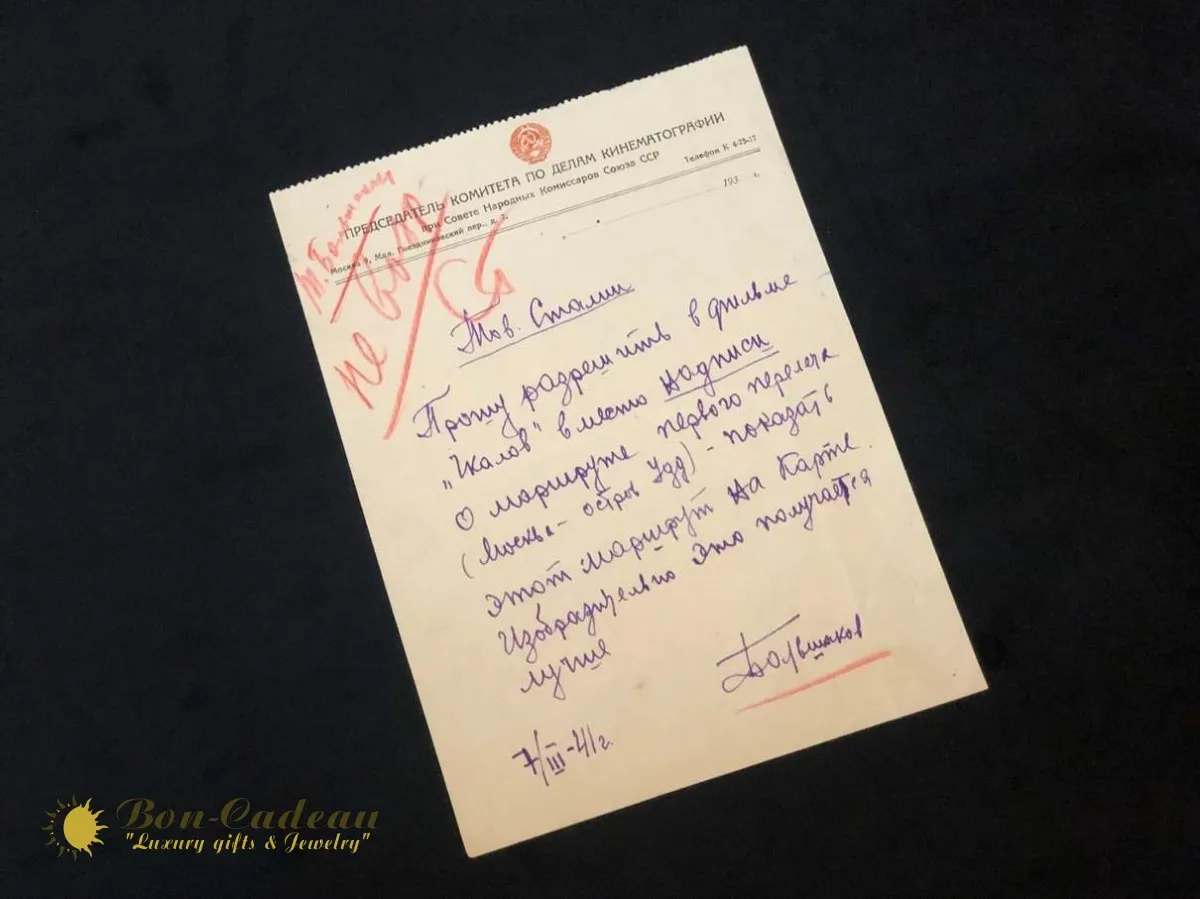 ПРЕДСЕДАТЕЛЬ КОМИТЕТА ПО ДЕЛАМ КИНЕМАТОГРАФИИ
при Совете Народных Комиссаров Союза ССР
Москва 9, Мал. Гнездниковский пер., д. 7.
Телефон К 4-75-17
193 г.
т. Большакову
Не
Ст
Тов. Сталин
Прошу разрешить в фильме
„Чкалов" вместо надписи
о маршруте первого перелета
(Москва - остров Удд) - показать
этот маршрут на карте.
Изобразительно это получается
лучше
Большаков
7/III-41г.
Bon-Cadeau
"Luxury gifts & Jewelry"